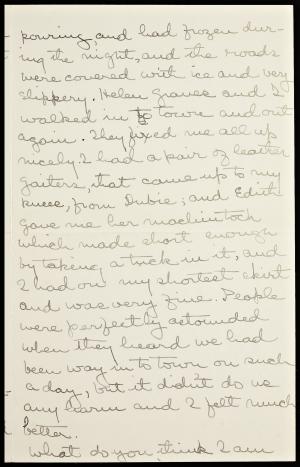 pouring, and had frozen dur-
ing the night, and the roads
were covered with ice and very
slippery. Helen Graves and I
walked in to towne and out
again. They fixed me all up
nicely. I had a pair of leather
gaiters, that came up to my
knees, from Dubie; and Edith
gave me her mackintoch
which made short enough
by taking a tuck in it, and
I had on my shortest skirt
and was very fine. People
were perfectly astounded
when they heard we had
been way in to town on such
a day, but it didn't do us
any harm and I felt much
better.
What do you think I am